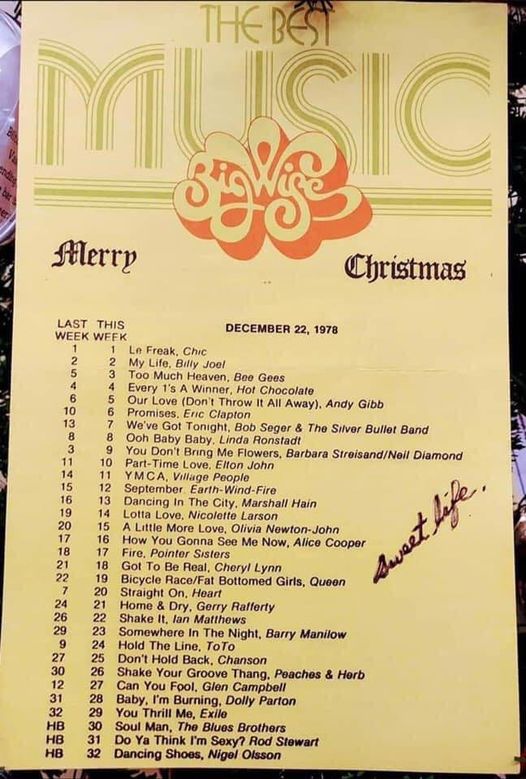 THE BEST
MUSIC
Big Wise
Merry Christmas
LAST THIS
WEEK WEEK
DECEMBER 22, 1978
1 1 Le Freak, Chic
2 2 My Life, Billy Joel
5 3 Too Much Heaven, Bee Gees
4 4 Every 1's A Winner, Hot Chocolate
6 5 Our Love (Don't Throw It All Away), Andy Gibb
10 6 Promises, Eric Clapton
13 7 We've Got Tonight, Bob Seger & The Silver Bullet Band
8 8 Ooh Baby Baby, Linda Ronstadt
3 9 You Don't Bring Me Flowers, Barbara Streisand/Neil Diamond
11 10 Part-Time Love, Elton John
14 11 YMCA, Village People
15 12 September, Earth-Wind-Fire
16 13 Dancing In The City, Marshall Hain
19 14 Lotta Love, Nicolette Larson
20 15 A Little More Love, Olivia Newton-John
17 16 How You Gonna See Me Now, Alice Cooper
18 17 Fire, Pointer Sisters
21 18 Got To Be Real, Cheryl Lynn
22 19 Bicycle Race/Fat Bottomed Girls, Queen
7 20 Straight On, Heart
24 21 Home & Dry, Gerry Rafferty
26 22 Shake It, Ian Matthews
29 23 Somewhere In The Night, Barry Manilow
9 24 Hold The Line, ToTo
27 25 Don't Hold Back, Chanson
30 26 Shake Your Groove Thang, Peaches & Herb
12 27 Can You Fool, Glen Campbell
31 28 Baby, I'm Burning, Dolly Parton
32 29 You Thrill Me, Exile
HB 30 Soul Man, The Blues Brothers
HB 31 Do Ya Think I'm Sexy? Rod Stewart
HB 32 Dancing Shoes, Nigel Olsson
Sweet life.